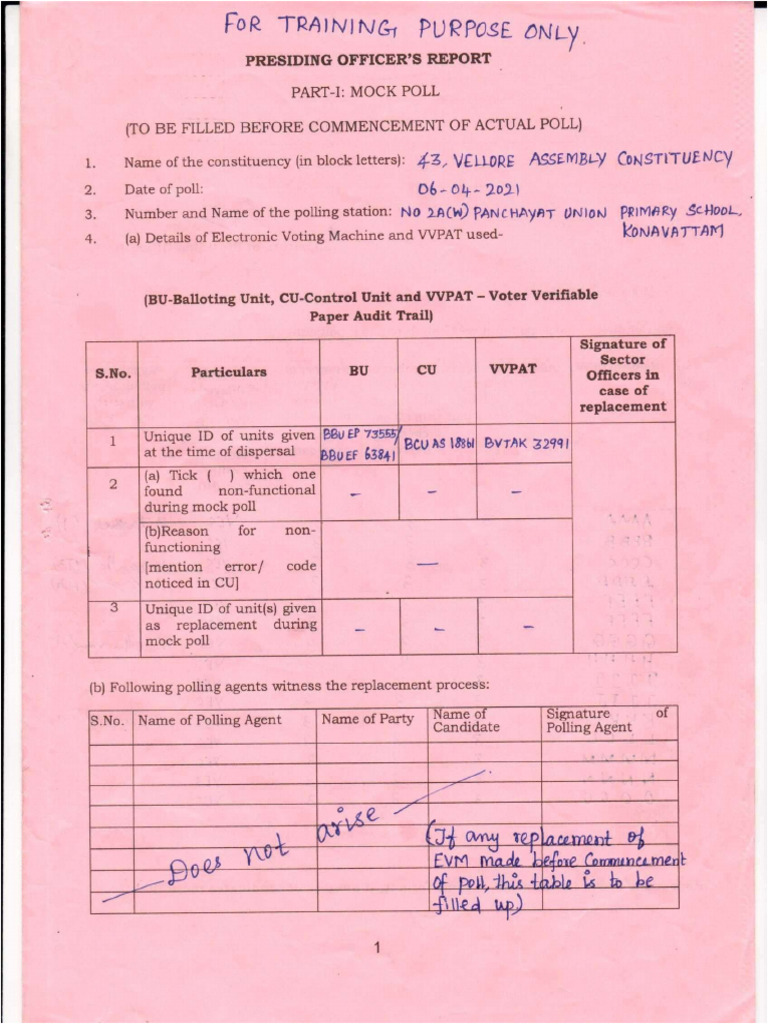 FOR TRAINING PURPOSE ONLY.
PRESIDING OFFICER'S REPORT
PART-I: MOCK POLL
(TO BE FILLED BEFORE COMMENCEMENT OF ACTUAL POLL)
1. Name of the constituency (in block letters): 43, VELLORE ASSEMBLY CONSTITUENCY
2. Date of poll: 06-04-2021
3. Number and Name of the polling station: NO 2A(W) PANCHAYAT UNION PRIMARY SCHOOL,
KONAVATTAM
4. (a) Details of Electronic Voting Machine and VVPAT used-
(BU-Balloting Unit, CU-Control Unit and VVPAT – Voter Verifiable
Paper Audit Trail)
S.No. Particulars BU CU VVPAT Signature of
Sector
Officers in
case of
replacement
1 Unique ID of units given
at the time of dispersal
BBUEP 73555/
BBUEF 63841
BCUAS 18861
BVTAK 32991
2 (a) Tick ( ) which one
found non-functional
during mock poll
– – –
(b)Reason for non-
functioning
[mention error/ code
noticed in CU]
—
3 Unique ID of unit(s) given
as replacement during
mock poll
– – –
(b) Following polling agents witness the replacement process:
S.No. Name of Polling Agent Name of Party Name of
Candidate
Signature of
Polling Agent
Does not arise
(If any replacement of
EVM made before Commencement
of poll, this table is to be
filled up)
1